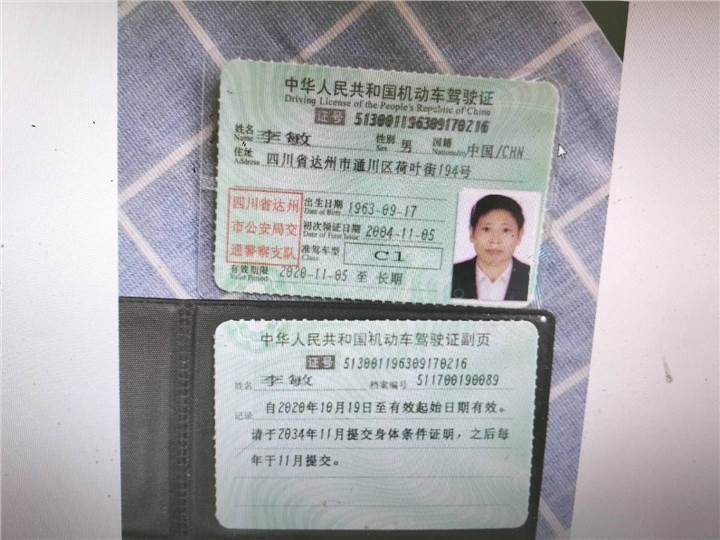 中华人民共和国机动车驾驶证
Driving License of the People's Republic of China
证号 513001196309170216
姓名 李敏 性别 男 国籍 中国/CHN
Name Sex Nationality
住址 四川省达州市通川区荷叶街194号
Address
四川省达州
市公安局交
通警察支队
出生日期 1963-09-17
Date of Birth
初次领证日期 2004-11-05
Date of First Issue
准驾车型 C1
Class
有效期限 2020-11-05 至 长期
Valid Period
中华人民共和国机动车驾驶证副页
证号 513001196309170216
姓名 李敏 档案编号 511700190089
记录 自2020年10月19日至有效起始日期有效。
请于2034年11月提交身体条件证明，之后每
年于11月提交。